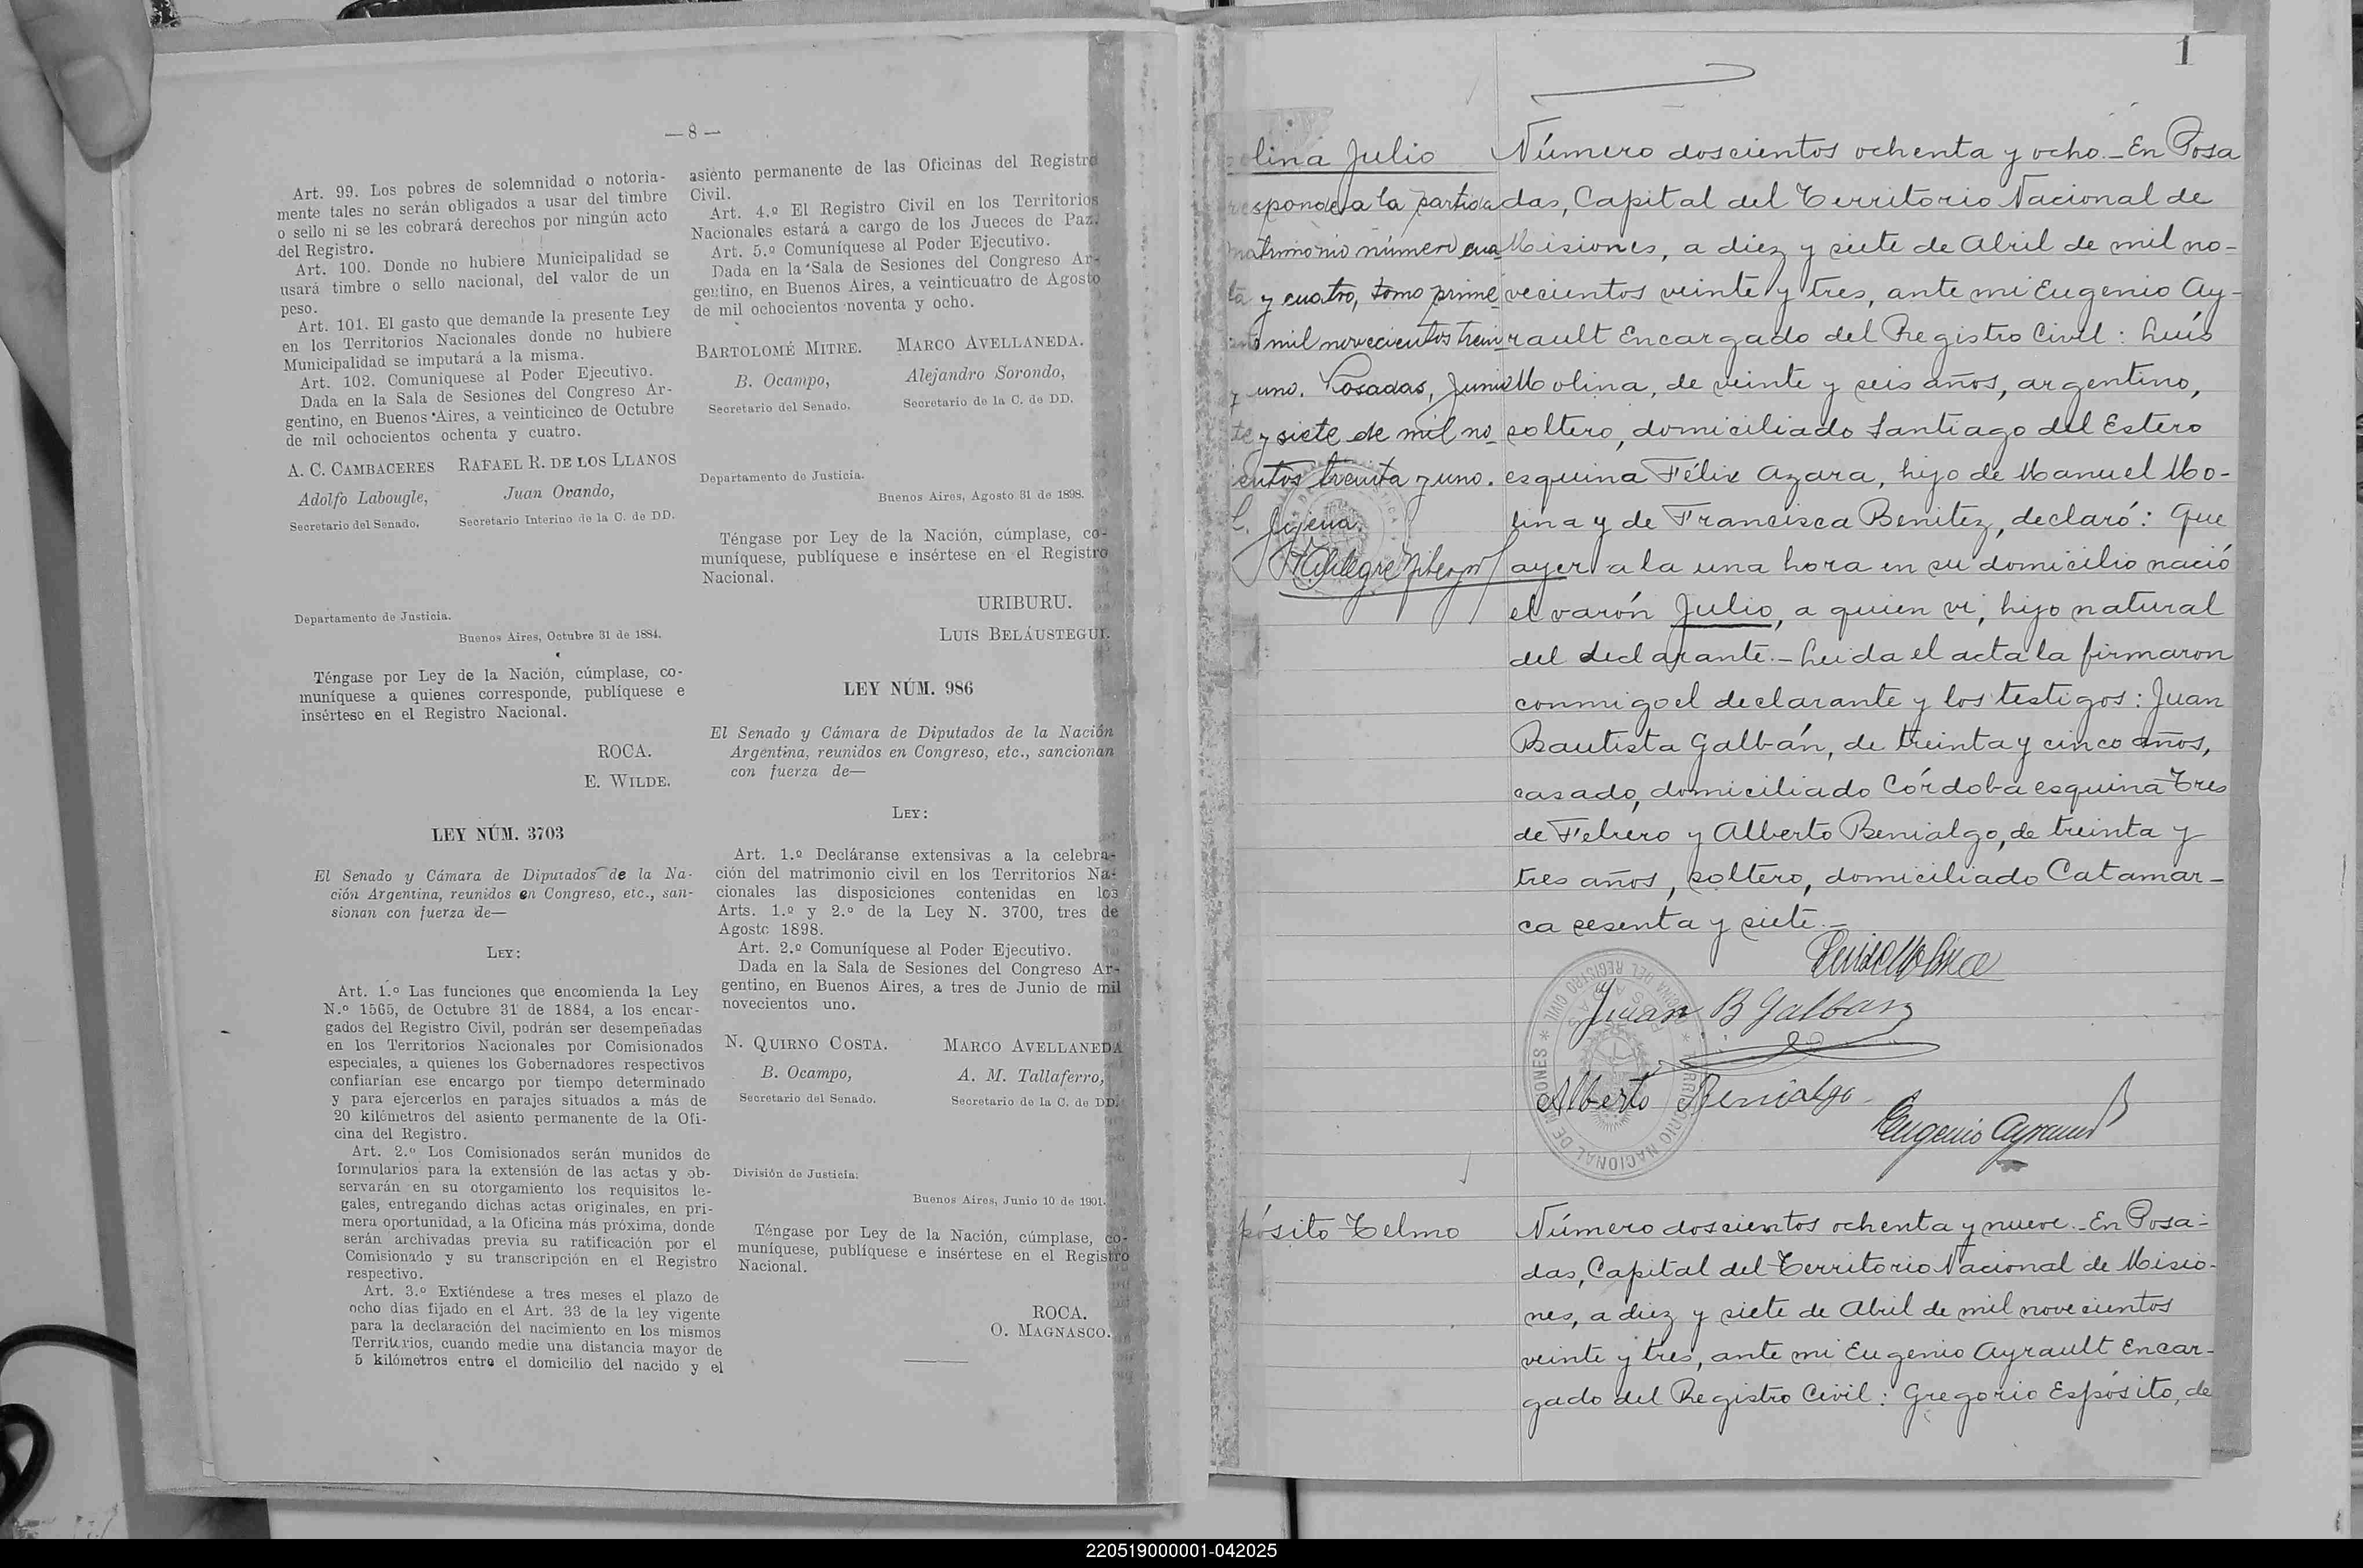 — 8 —
Art. 99. Los pobres de solemnidad o notoria-
mente tales no serán obligados a usar del timbre
o sello ni se les cobrará derechos por ningún acto
del Registro.
Art. 100. Donde no hubiere Municipalidad se
usará timbre o sello nacional, del valor de un
peso.
Art. 101. El gasto que demande la presente Ley
en los Territorios Nacionales donde no hubiere
Municipalidad se imputará a la misma.
Art. 102. Comuníquese al Poder Ejecutivo.
Dada en la Sala de Sesiones del Congreso Ar-
gentino, en Buenos Aires, a veinticinco de Octubre
de mil ochocientos ochenta y cuatro.
A. C. CAMBACERES RAFAEL R. DE LOS LLANOS
Adolfo Labougle, Juan Ovando,
Secretario del Senado. Secretario Interino de la C. de DD.
Departamento de Justicia.
Buenos Aires, Octubre 31 de 1884.
Téngase por Ley de la Nación, cúmplase, co-
muníquese a quienes corresponde, publíquese e
insértese en el Registro Nacional.
ROCA.
E. WILDE.
LEY NÚM. 3703
El Senado y Cámara de Diputados de la Na-
ción Argentina, reunidos en Congreso, etc., san-
sionan con fuerza de—
LEY:
Art. 1.º Las funciones que encomienda la Ley
N.º 1565, de Octubre 31 de 1884, a los encar-
gados del Registro Civil, podrán ser desempeñadas
en los Territorios Nacionales por Comisionados
especiales, a quienes los Gobernadores respectivos
confiarían ese encargo por tiempo determinado
y para ejercerlos en parajes situados a más de
20 kilómetros del asiento permanente de la Ofi-
cina del Registro.
Art. 2.º Los Comisionados serán munidos de
formularios para la extensión de las actas y ob-
servarán en su otorgamiento los requisitos le-
gales, entregando dichas actas originales, en pri-
mera oportunidad, a la Oficina más próxima, donde
serán archivadas previa su ratificación por el
Comisionado y su transcripción en el Registro
respectivo.
Art. 3.º Extiéndese a tres meses el plazo de
ocho días fijado en el Art. 33 de la ley vigente
para la declaración del nacimiento en los mismos
Territorios, cuando medie una distancia mayor de
5 kilómetros entre el domicilio del nacido y el
asiento permanente de las Oficinas del Registro
Civil.
Art. 4.º El Registro Civil en los Territorios
Nacionales estará a cargo de los Jueces de Paz.
Art. 5.º Comuníquese al Poder Ejecutivo.
Dada en la Sala de Sesiones del Congreso Ar-
gentino, en Buenos Aires, a veinticuatro de Agosto
de mil ochocientos noventa y ocho.
BARTOLOMÉ MITRE. MARCO AVELLANEDA.
B. Ocampo, Alejandro Sorondo,
Secretario del Senado. Secretario de la C. de DD.
Departamento de Justicia.
Buenos Aires, Agosto 31 de 1898.
Téngase por Ley de la Nación, cúmplase, co-
muníquese, publíquese e insértese en el Registro
Nacional.
URIBURU.
LUIS BELÁUSTEGUI.
LEY NÚM. 986
El Senado y Cámara de Diputados de la Nación
Argentina, reunidos en Congreso, etc., sancionan
con fuerza de—
LEY:
Art. 1.º Decláranse extensivas a la celebra-
ción del matrimonio civil en los Territorios Na-
cionales las disposiciones contenidas en los
Arts. 1.º y 2.º de la Ley N. 3700, tres de
Agosto 1898.
Art. 2.º Comuníquese al Poder Ejecutivo.
Dada en la Sala de Sesiones del Congreso Ar-
gentino, en Buenos Aires, a tres de Junio de mil
novecientos uno.
N. QUIRNO COSTA. MARCO AVELLANEDA
B. Ocampo, A. M. Tallaferro,
Secretario del Senado. Secretario de la C. de DD.
División de Justicia.
Buenos Aires, Junio 10 de 1901.
Téngase por Ley de la Nación, cúmplase, co-
muníquese, publíquese e insértese en el Registro
Nacional.
ROCA.
O. MAGNASCO.
1
olina Julio
esponde a la partida
matrimonio número cua-
ta y cuatro, tomo prime
mil novecientos trein-
y uno. Posadas, Junio
te y siete de mil no-
cientos treinta y uno.
Número doscientos ochenta y ocho.- En Posa
das, Capital del Territorio Nacional de
Misiones, a diez y siete de Abril de mil no-
vecientos veinte y tres, ante mi Eugenio Ay-
rault Encargado del Registro Civil: Luís
Molina, de veinte y seis años, argentino,
soltero, domiciliado Santiago del Estero
esquina Félix Azara, hijo de Manuel Mo-
lina y de Francisca Benitez, declaró: Que
ayer a la una hora en su domicilio nació
el varón Julio, a quien vi, hijo natural
del declarante.- Leida el acta la firmaron
conmigo el declarante y los testigos: Juan
Bautista Galbán, de treinta y cinco años,
casado, domiciliado Córdoba esquina Tres
de Febrero y Alberto Benialgo, de treinta y
tres años, soltero, domiciliado Catamar-
ca sesenta y siete.-
Luis Molina
Juan B Galban
Alberto Benialgo
Eugenio Ayrault
OFICINA DEL REGISTRO CIVIL
POSADAS
* TERRITORIO NACIONAL DE MISIONES *
pósito Telmo
Número doscientos ochenta y nueve.- En Posa-
das, Capital del Territorio Nacional de Misio-
nes, a diez y siete de Abril de mil novecientos
veinte y tres, ante mi Eugenio Ayrault Encar-
gado del Registro Civil: Gregorio Espósito, de
220519000001-042025